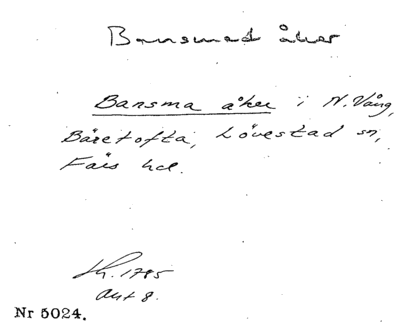 Bansmad åker
Bansma åker i N. Vång,
Bäretofta, Lövestad sn,
Färs hd.
Sk. 1785
Akt 8.
Nr 5024.